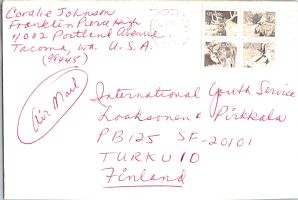 Coralie Johnson
Franklin Pierce High
11002 Portland Avenue
Tacoma, Wa. U.S.A.
(98445)
Air Mail
International Youth Service
Looksonen & Pirkkala
PB 125 SF-20101
TURKU 10
Finland